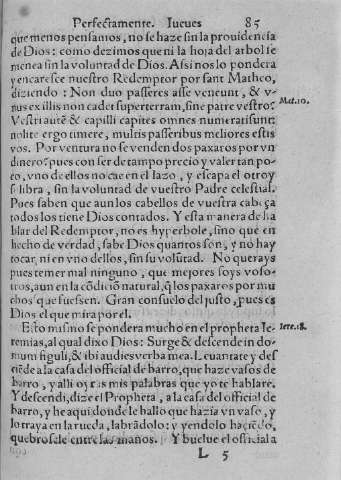 Perfectamente. Iueues 85
que menos pensamos, no se haze sin la prouidencia
de Dios: como dezimos que ni la hoja del arbol se
menea sin la voluntad de Dios. Assi nos lo pondera
y encaresce nuestro Redemptor por sant Matheo,
diziendo: Non duo passeres asse veneunt, & v-
nus ex illis non cadet super terram, sine patre vestro?
Mat. 10.
Vestri autẽ & capilli capites omnes numerati sunt:
nolite ergo timere, multis passeribus meliores estis
vos. Por ventura no se venden dos paxaros por vn
dinero? pues con ser de tampo precio y valer tan po-
co, vno de ellos no cae en el lazo, y escapa el otro y
se libra, sin la voluntad de vuestro Padre celestial.
Pues saben que aun los cabellos de vuestra cabeça
todos los tiene Dios contados. Y esta manera de ha
blar del Redemptor, no es hyperbole, sino que en
hecho de verdad, sabe Dios quantos son, y no hay
tocar ni en vno dellos, sin su volũtad. No querays
pues temer mal ninguno, que mejores soys voso-
tros, aun en la cõdiciõ natural, q̃ los paxaros por mu
chos que fuessen. Gran consuelo del justo, pues es
Dios el que mira por el.
Esto mismo se pondera mucho en el propheta Ie-
Iere. 18.
remias, al qual dixo Dios: Surge & descende in do-
mum figuli, & ibi audies verba mea. Leuantate y des
ciẽde a la casa del official de barro, que haze vasos de
barro, y alli oyras mis palabras que yo te hablare.
Y descendi, dize el Propheta, a la casa del official de
barro, y he aqui donde le hallo que hazia vn vaso, y
lo traya en la rueda, labrãdolo: y yendolo haciẽdo,
quebrosele entre las manos. Y buelue el official a
L 5